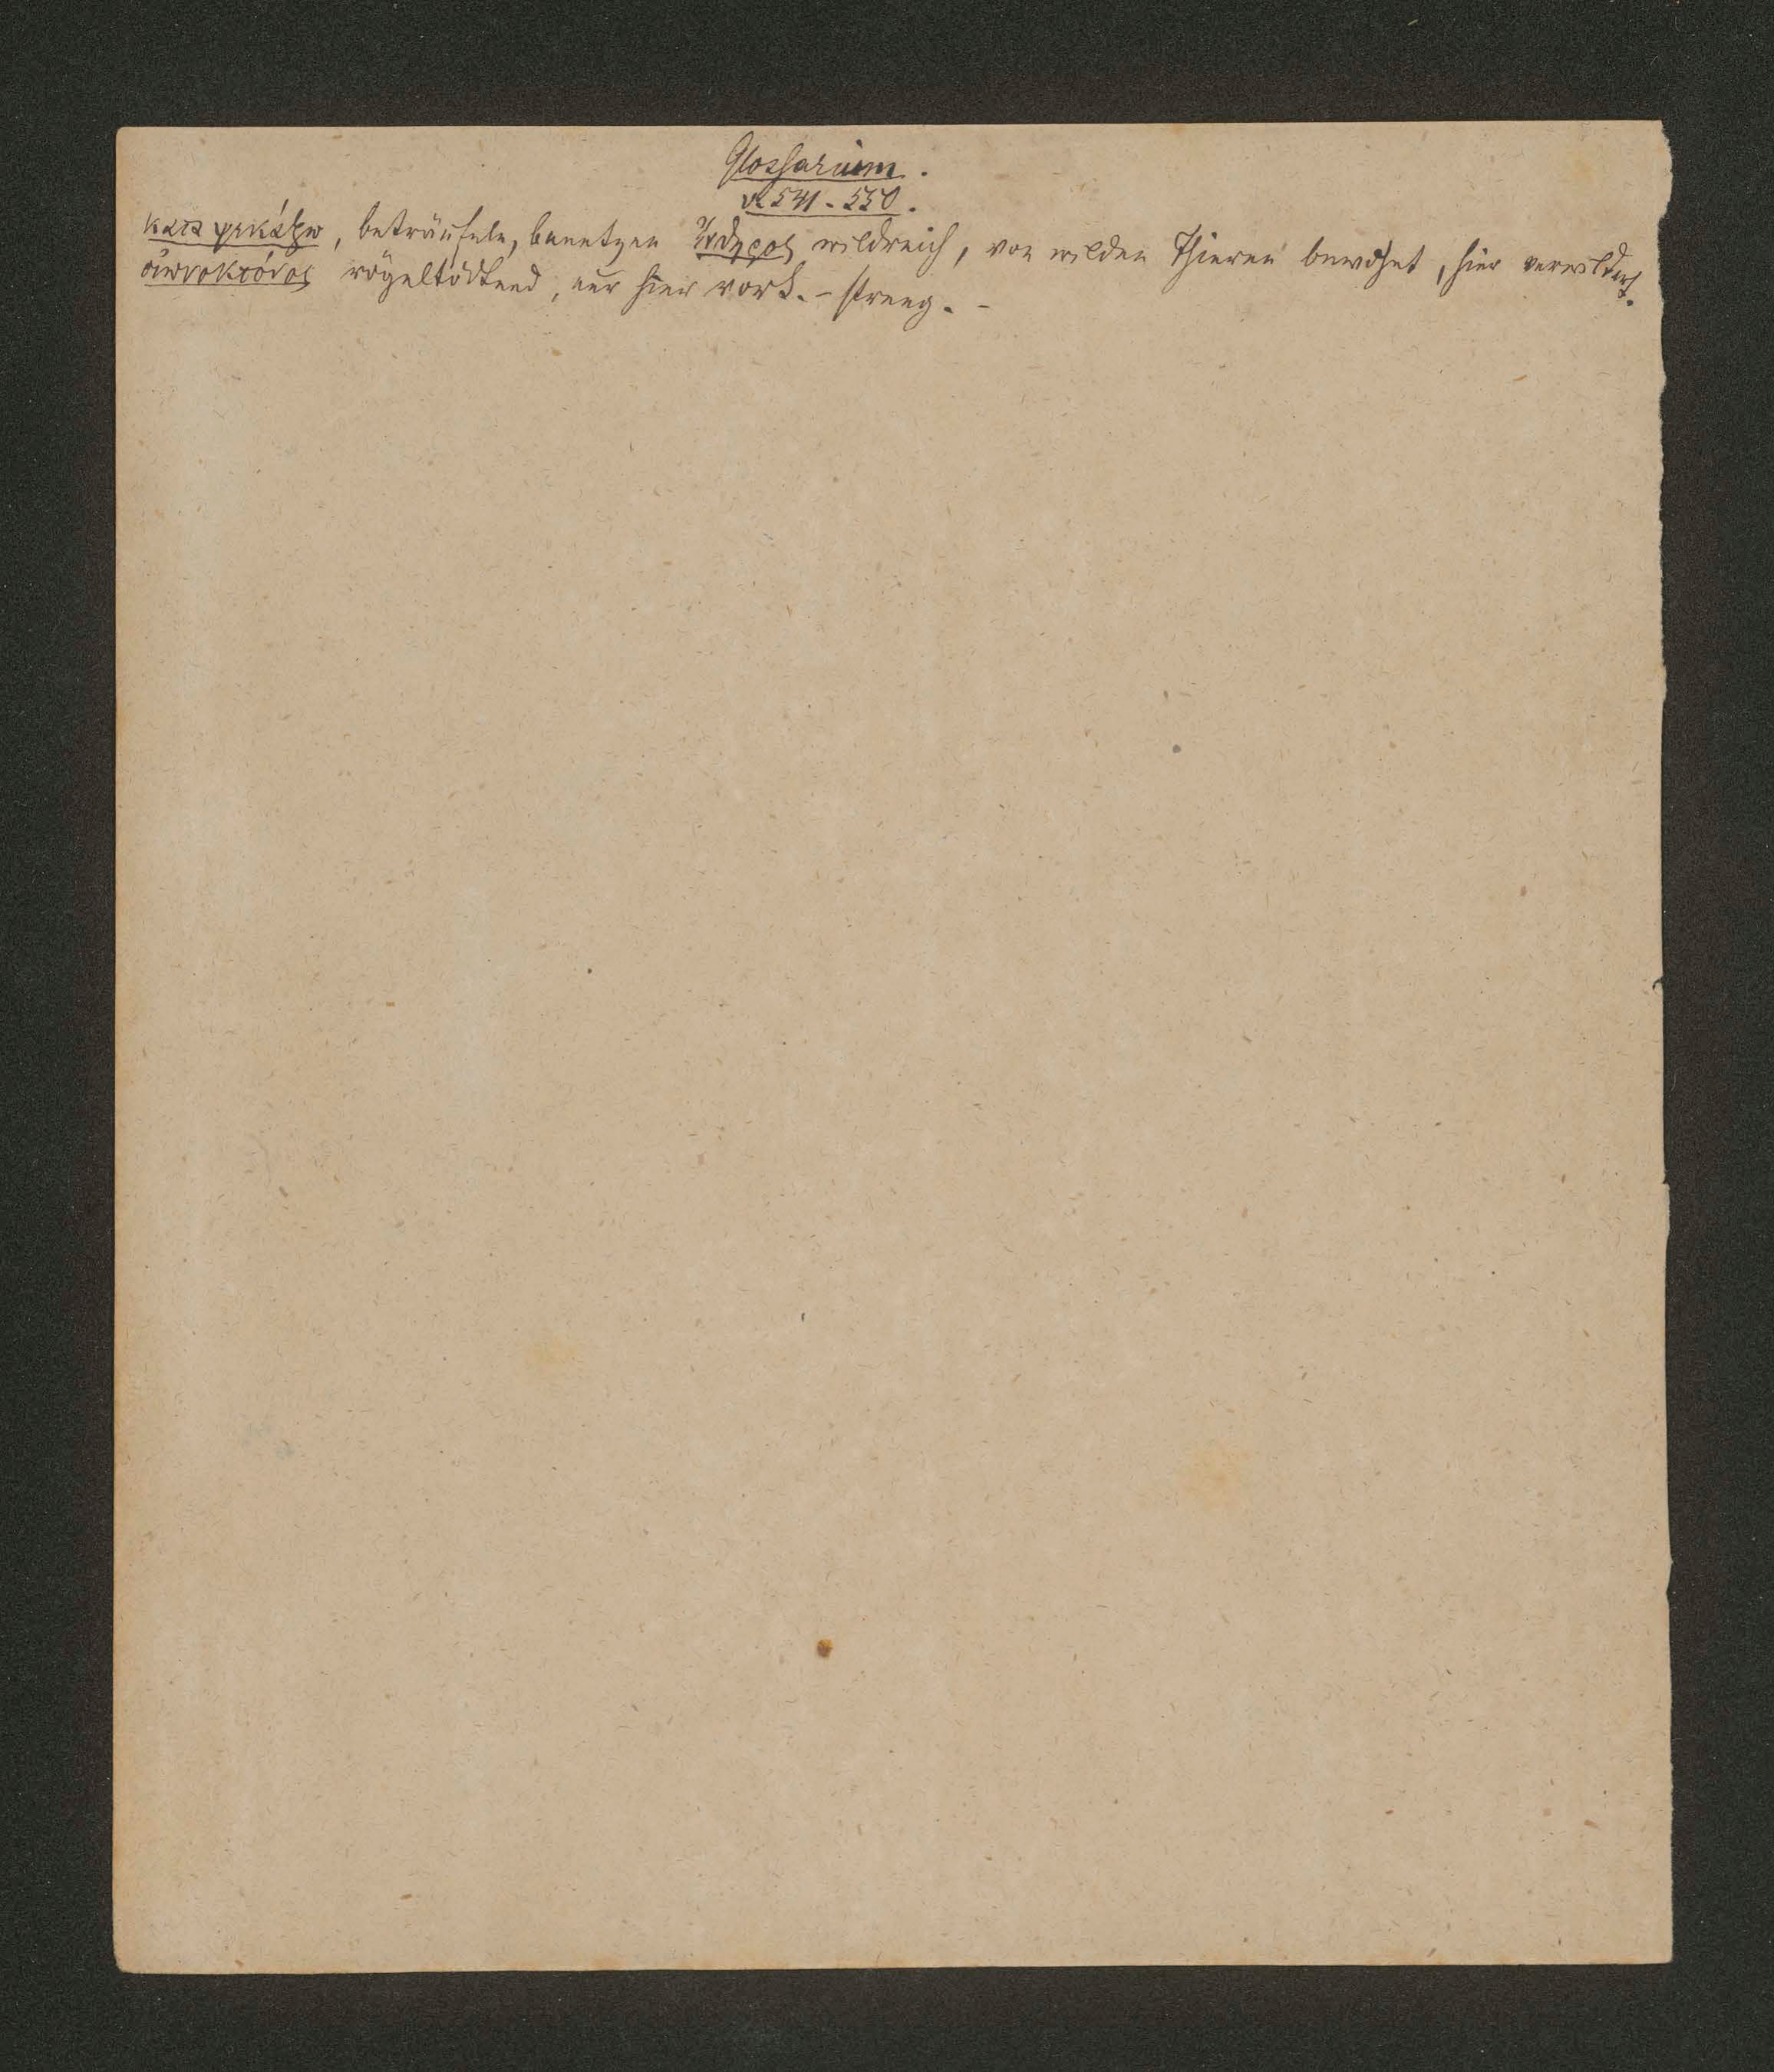 Glossarium.
v. 541 - 550.
καταψεκάζω, beträufeln, benetzen ἔνθηρος wildreich, von wilden Thieren bewohnt, hier verwildert.
οἰωνοκτόνος vögeltödtend, nur hier vork. – streng. –